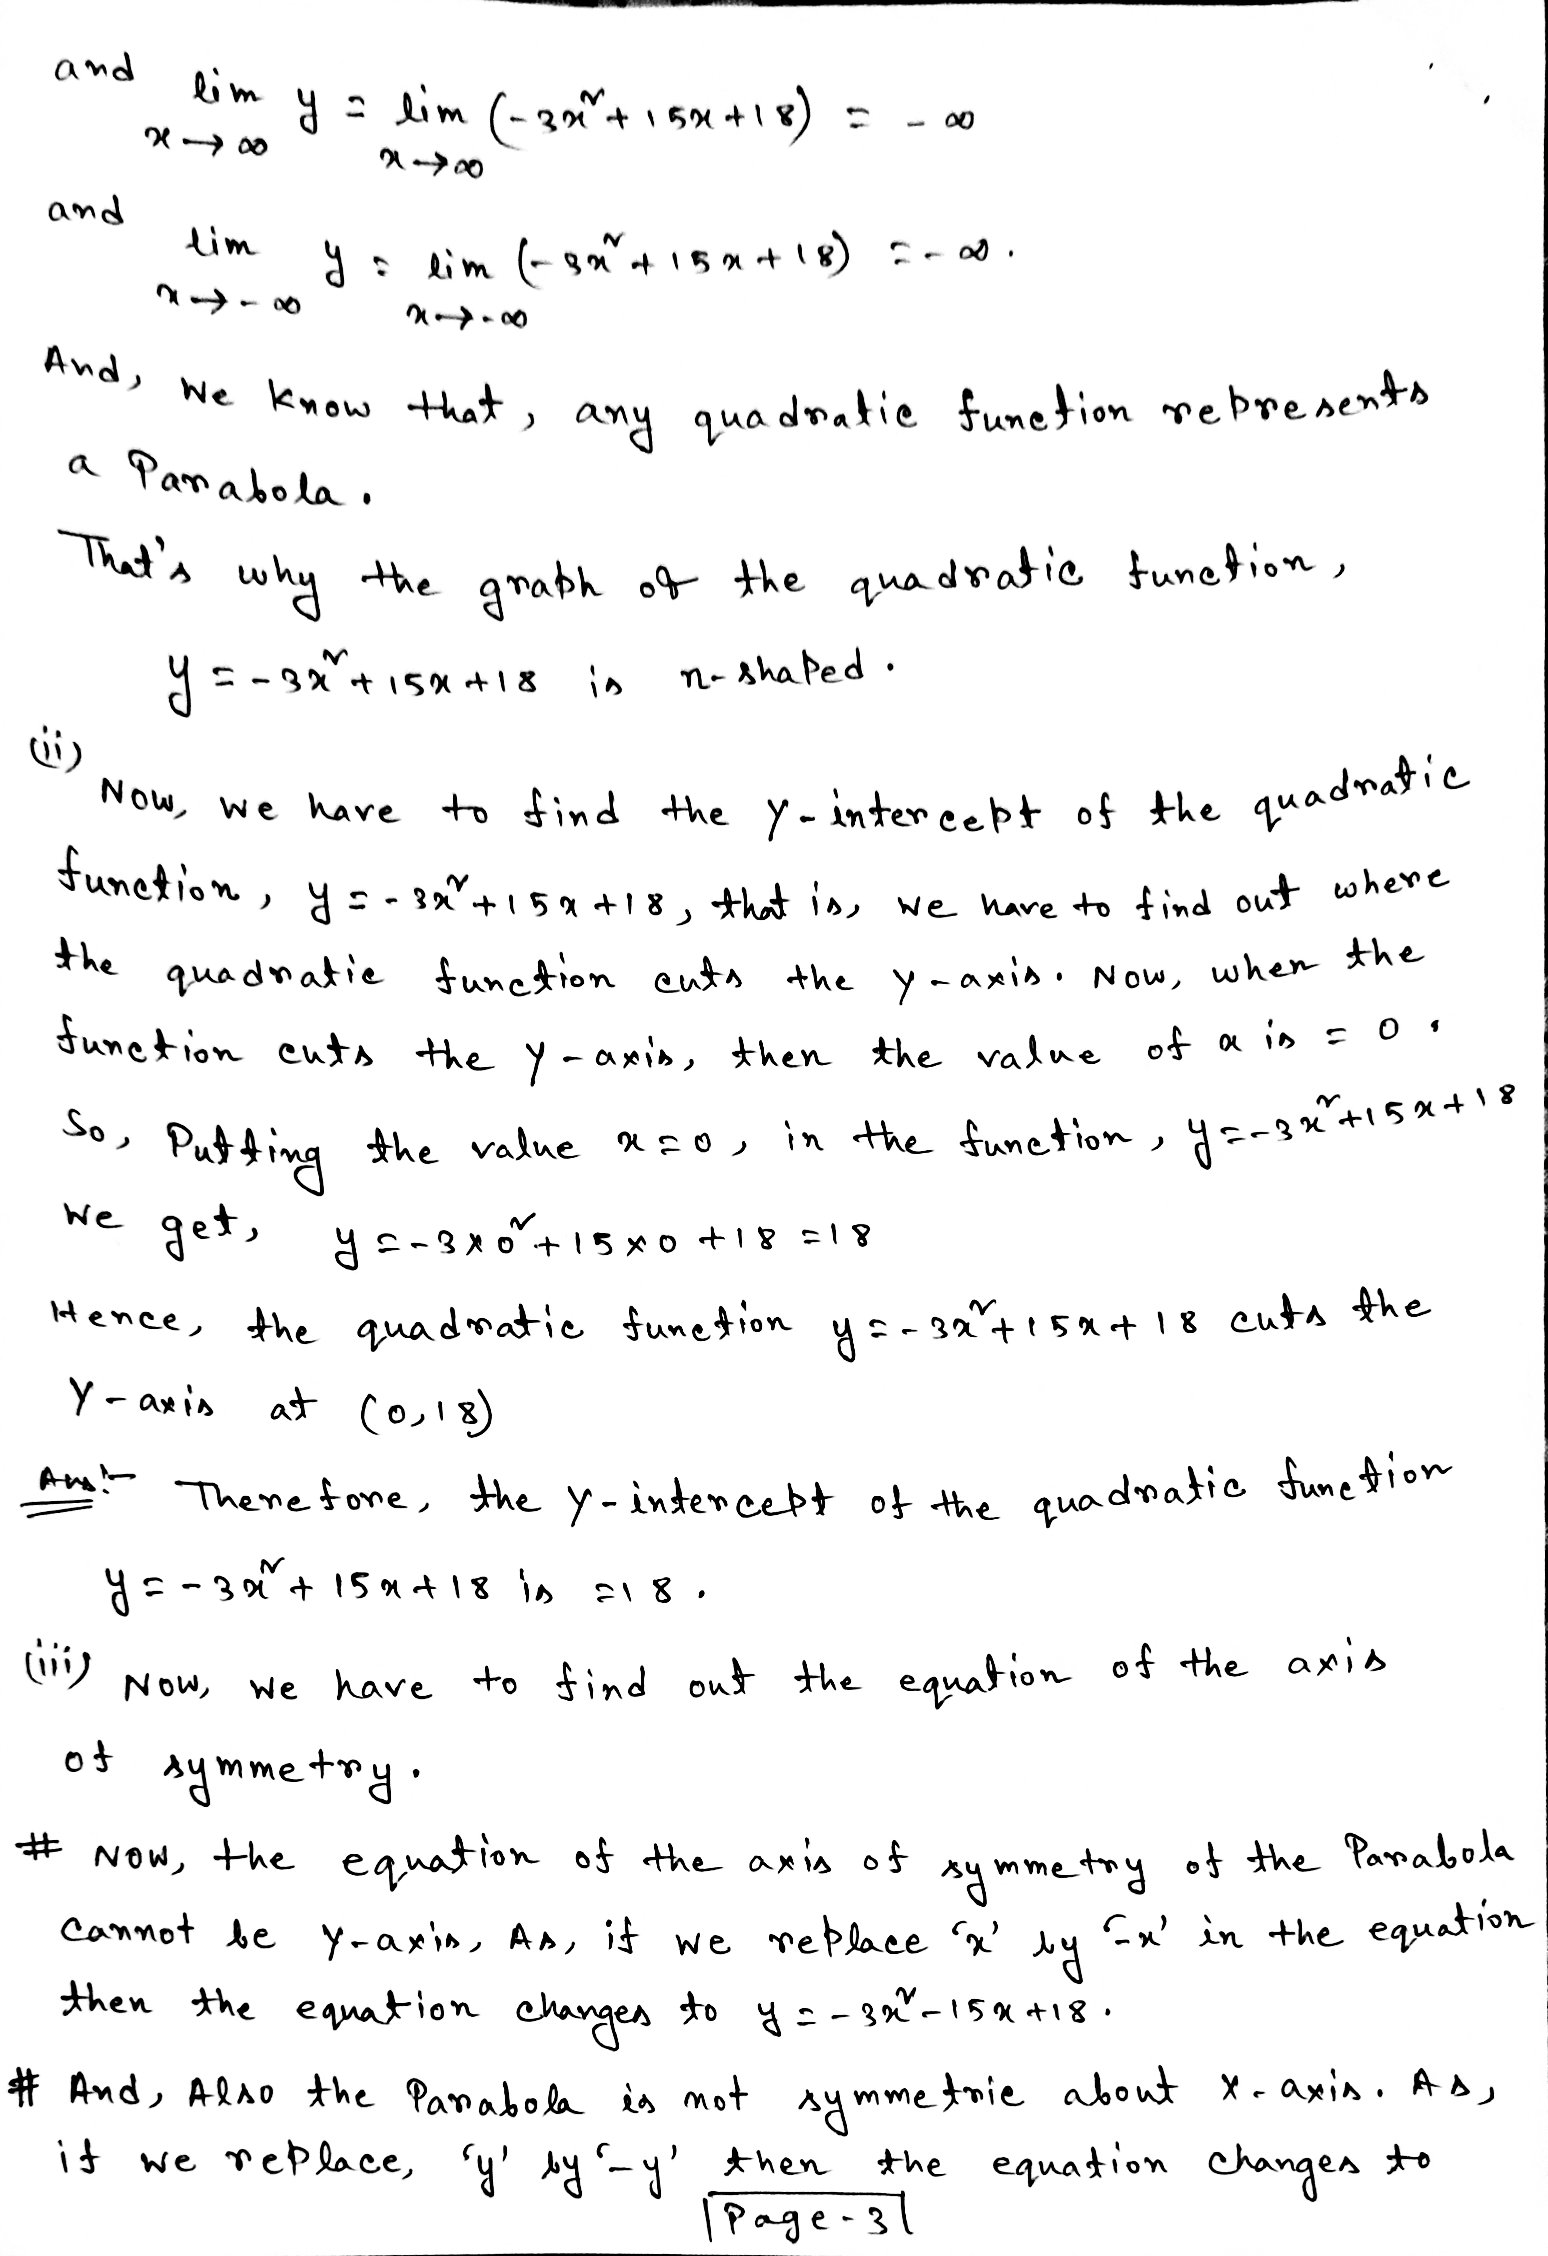 and lim y = lim (-3x² + 15x + 18) = -∞
x→∞ x→∞
and lim y = lim (-3x² + 15x + 18) = -∞.
x→-∞ x→-∞
And, we know that, any quadratic function represents
a Parabola.
That's why the graph of the quadratic function,
y = -3x² + 15x + 18 is n-shaped.
(ii)
Now, we have to find the y-intercept of the quadratic
function, y = -3x² + 15x + 18, that is, we have to find out where
the quadratic function cuts the y-axis. Now, when the
function cuts the y-axis, then the value of x is = 0.
So, Putting the value x = 0, in the function, y = -3x² + 15x + 18
we get, y = -3×0² + 15×0 + 18 = 18
Hence, the quadratic function y = -3x² + 15x + 18 cuts the
Y-axis at (0,18)
Ans:- Therefore, the y-intercept of the quadratic function
y = -3x² + 15x + 18 is = 18.
(iii) Now, we have to find out the equation of the axis
of symmetry.
# Now, the equation of the axis of symmetry of the Parabola
cannot be y-axis, As, if we replace 'x' by '-x' in the equation
then the equation changes to y = -3x² - 15x + 18.
# And, Also the Parabola is not symmetric about x-axis. As,
if we replace, 'y' by '-y' then the equation changes to
Page-3